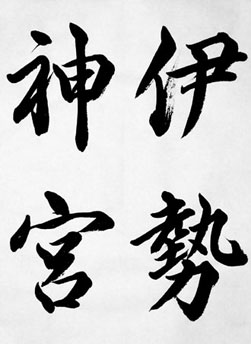 伊勢
神宮